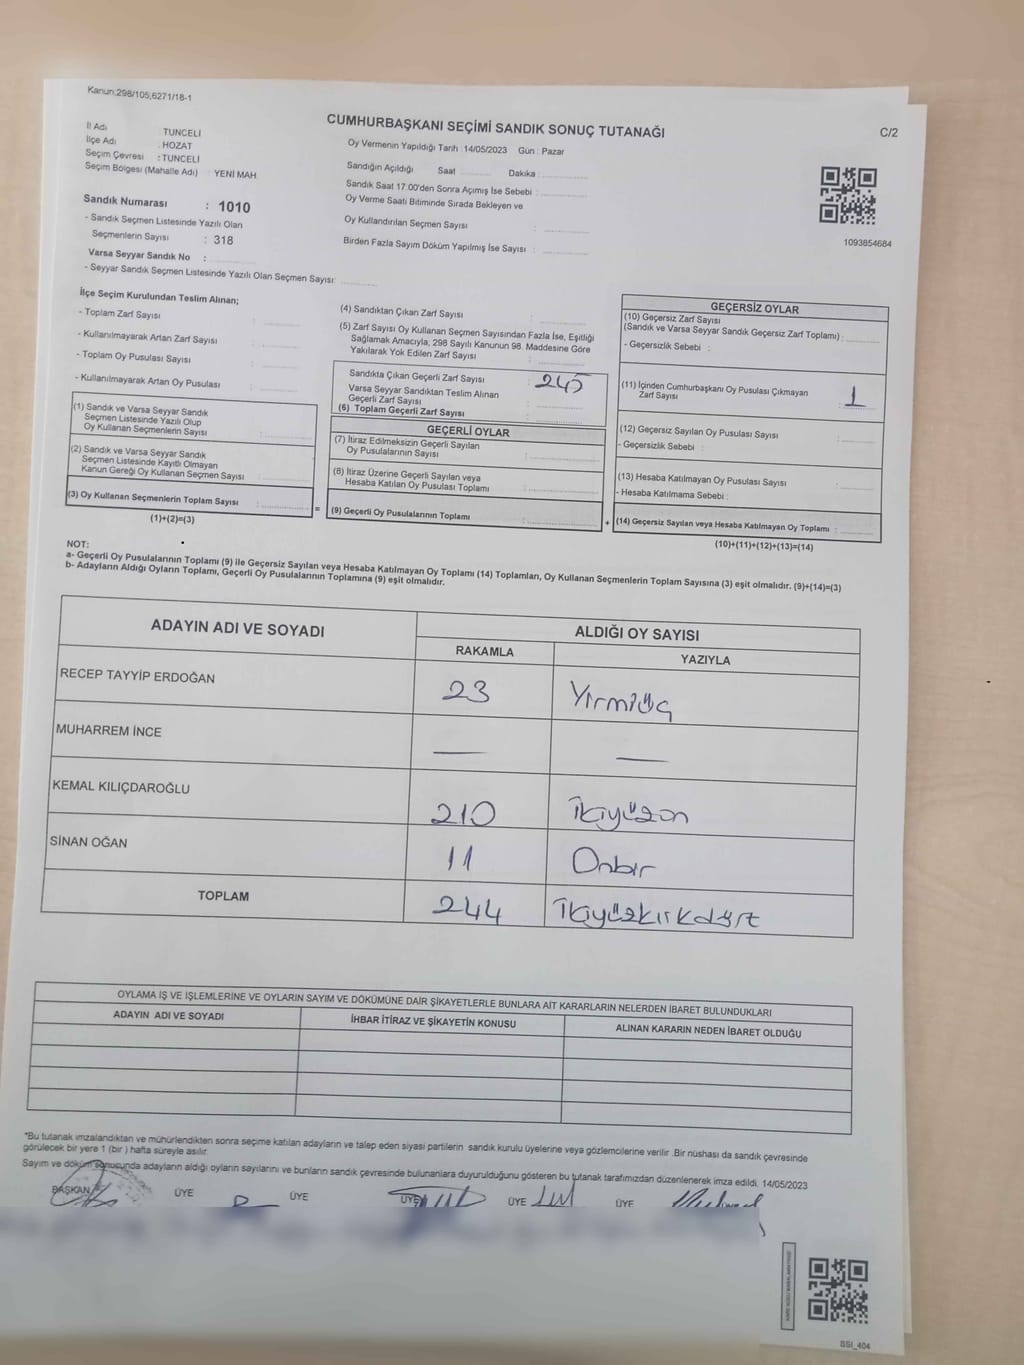 Kanun:298/105,6271/18-1
CUMHURBAŞKANI SEÇİMİ SANDIK SONUÇ TUTANAĞI
C/2
İl Adı : TUNCELİ
İlçe Adı : HOZAT
Seçim Çevresi : TUNCELİ
Seçim Bölgesi (Mahalle Adı) : YENİ MAH
Sandık Numarası : 1010
- Sandık Seçmen Listesinde Yazılı Olan
Seçmenlerin Sayısı : 318
Varsa Seyyar Sandık No :
- Seyyar Sandık Seçmen Listesinde Yazılı Olan Seçmen Sayısı:
Oy Vermenin Yapıldığı Tarih :14/05/2023 Gün : Pazar
Sandığın Açıldığı Saat Dakika :
Sandık Saat 17.00'den Sonra Açımış İse Sebebi :
Oy Verme Saati Bitiminde Sırada Bekleyen ve
Oy Kullandırılan Seçmen Sayısı :
Birden Fazla Sayım Döküm Yapılmış İse Sayısı :
1093854684
İlçe Seçim Kurulundan Teslim Alınan;
- Toplam Zarf Sayısı :
- Kullanılmayarak Artan Zarf Sayısı :
- Toplam Oy Pusulası Sayısı :
- Kullanılmayarak Artan Oy Pusulası :
(1) Sandık ve Varsa Seyyar Sandık
Seçmen Listesinde Yazılı Olup
Oy Kullanan Seçmenlerin Sayısı :
(2) Sandık ve Varsa Seyyar Sandık
Seçmen Listesinde Kayıtlı Olmayan
Kanun Gereği Oy Kullanan Seçmen Sayısı :
(3) Oy Kullanan Seçmenlerin Toplam Sayısı :
(1)+(2)=(3)
=
(4) Sandıktan Çıkan Zarf Sayısı :
(5) Zarf Sayısı Oy Kullanan Seçmen Sayısından Fazla İse, Eşitliği
Sağlamak Amacıyla, 298 Sayılı Kanunun 98. Maddesine Göre
Yakılarak Yok Edilen Zarf Sayısı :
Sandıkta Çıkan Geçerli Zarf Sayısı : 245
Varsa Seyyar Sandıktan Teslim Alınan
Geçerli Zarf Sayısı :
(6) Toplam Geçerli Zarf Sayısı :
GEÇERLİ OYLAR
(7) İtiraz Edilmeksizin Geçerli Sayılan
Oy Pusulalarının Sayısı :
(8) İtiraz Üzerine Geçerli Sayılan veya
Hesaba Katılan Oy Pusulası Toplamı :
(9) Geçerli Oy Pusulalarının Toplamı :
+
GEÇERSİZ OYLAR
(10) Geçersiz Zarf Sayısı
(Sandık ve Varsa Seyyar Sandık Geçersiz Zarf Toplamı) :
- Geçersizlik Sebebi :
(11) İçinden Cumhurbaşkanı Oy Pusulası Çıkmayan
Zarf Sayısı : 1
(12) Geçersiz Sayılan Oy Pusulası Sayısı :
- Geçersizlik Sebebi :
(13) Hesaba Katılmayan Oy Pusulası Sayısı :
- Hesaba Katılmama Sebebi :
(14) Geçersiz Sayılan veya Hesaba Katılmayan Oy Toplamı :
(10)+(11)+(12)+(13)=(14)
NOT:
a- Geçerli Oy Pusulalarının Toplamı (9) ile Geçersiz Sayılan veya Hesaba Katılmayan Oy Toplamı (14) Toplamları, Oy Kullanan Seçmenlerin Toplam Sayısına (3) eşit olmalıdır. (9)+(14)=(3)
b- Adayların Aldığı Oyların Toplamı, Geçerli Oy Pusulalarının Toplamına (9) eşit olmalıdır.
ADAYIN ADI VE SOYADI ALDIĞI OY SAYISI
RAKAMLA YAZIYLA
RECEP TAYYİP ERDOĞAN 23 Yirmiüç
MUHARREM İNCE — —
KEMAL KILIÇDAROĞLU 210 İkiyüzon
SİNAN OĞAN 11 Onbir
TOPLAM 244 İkiyüzkırkdört
OYLAMA İŞ VE İŞLEMLERİNE VE OYLARIN SAYIM VE DÖKÜMÜNE DAİR ŞİKAYETLERLE BUNLARA AİT KARARLARIN NELERDEN İBARET BULUNDUKLARI
ADAYIN ADI VE SOYADI İHBAR İTİRAZ VE ŞİKAYETİN KONUSU ALINAN KARARIN NEDEN İBARET OLDUĞU
*Bu tutanak imzalandıktan ve mühürlendikten sonra seçime katılan adayların ve talep eden siyasi partilerin sandık kurulu üyelerine veya gözlemcilerine verilir .Bir nüshası da sandık çevresinde
görülecek bir yere 1 (bir ) hafta süreyle asılır.
Sayım ve döküm sonucunda adayların aldığı oyların sayılarını ve bunların sandık çevresinde bulunanlara duyurulduğunu gösteren bu tutanak tarafımızdan düzenlenerek imza edildi. 14/05/2023
BAŞKAN ÜYE ÜYE ÜYE ÜYE ÜYE
SSI_404